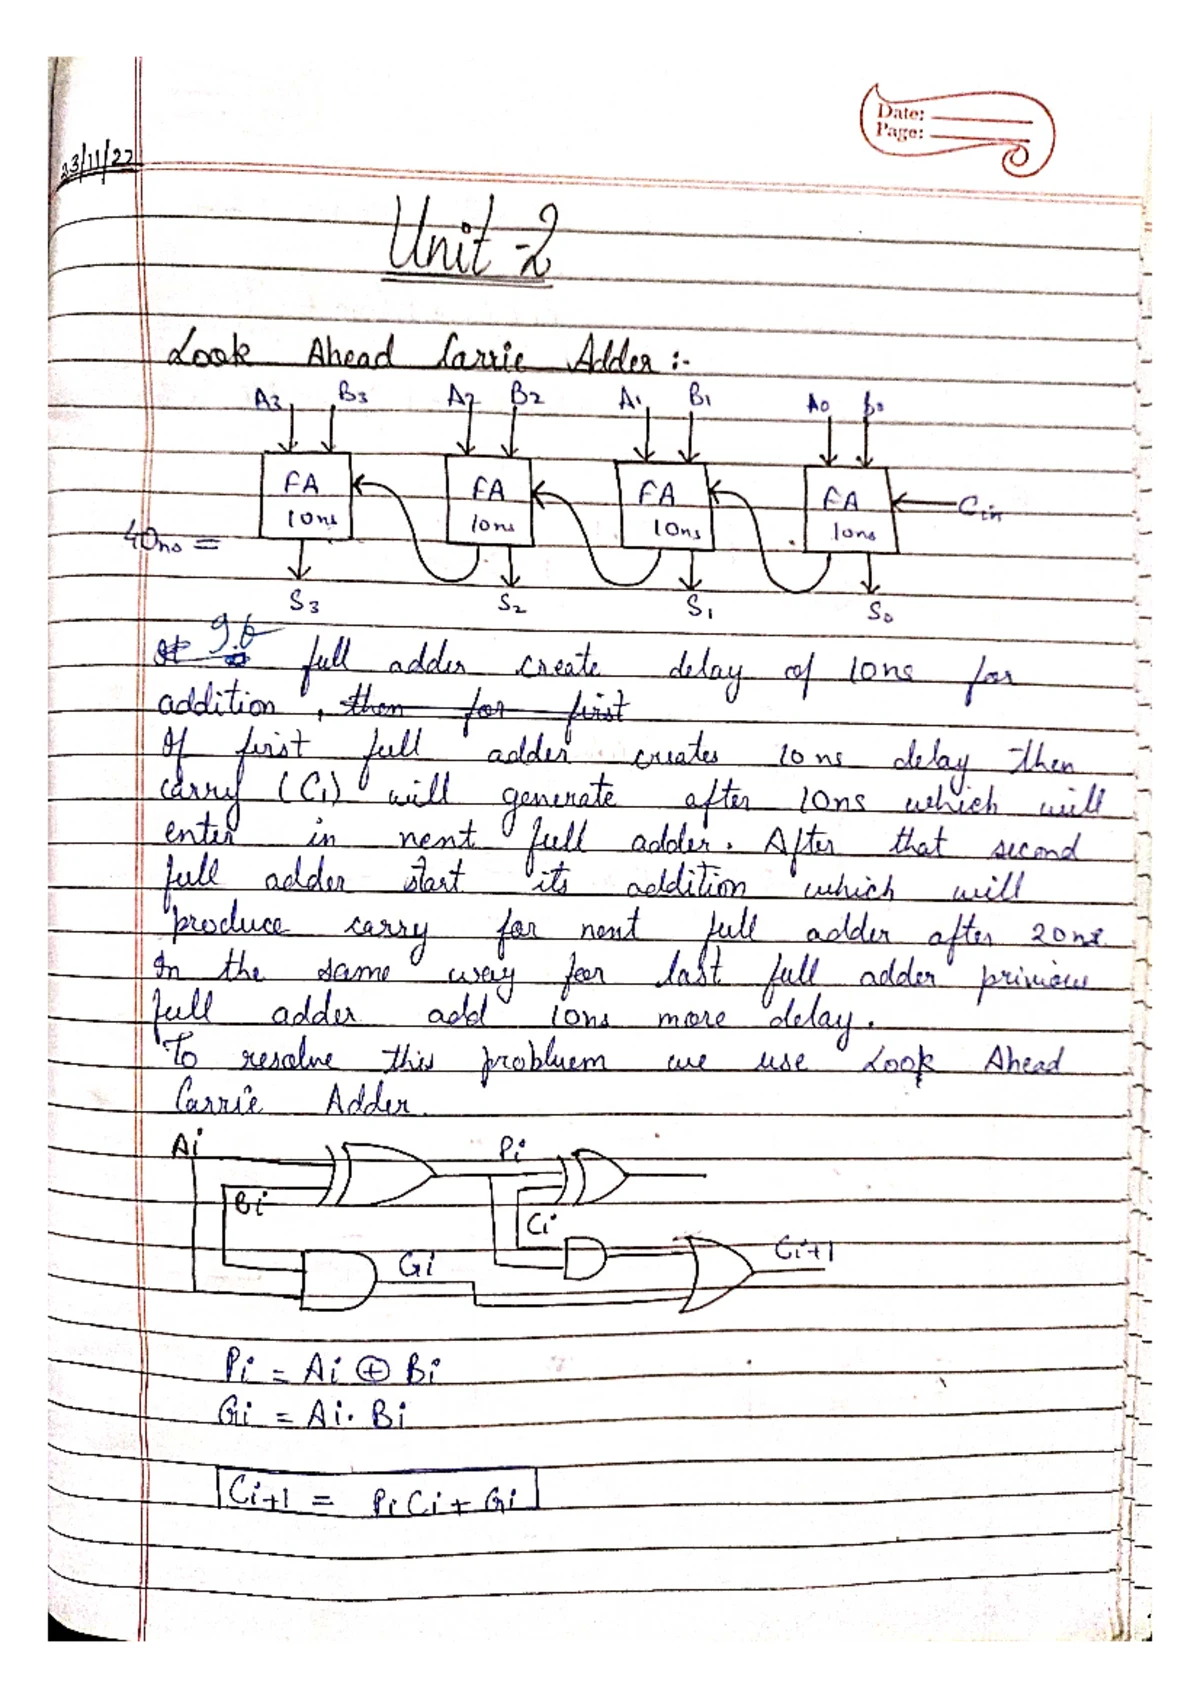 Date:
Page:
23/11/22
Unit -2
Look Ahead Carrie Adder :-
A3 B3 A2 B2 A1 B1 A0 B0
FA FA FA FA Cin
10ns 10ns 10ns 10ns
40ns =
S3 S2 S1 S0
If full adder create delay of 10ns for
addition, then for first
If first full adder creates 10 ns delay then
carry (C1) will generate after 10ns which will
enter in nent full adder. After that second
full adder start its addition which will
produce carry for nent full adder after 20ns.
In the same way for last full adder privious
full adder add 10ns more delay.
To resolve this probluem we use Look Ahead
Carrie Adder.
Ai Pi
Bi Ci
Gi Ci+1
Pi = Ai ⊕ Bi
Gi = Ai. Bi
Ci+1 = PiCi + Gi